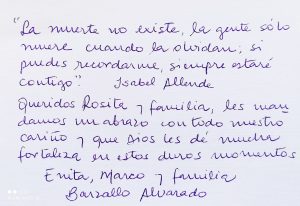 "La muerte no existe, la gente sólo
muere cuando la olvidan; si
puedes recordarme, siempre estaré
contigo". Isabel Allende
Queridos Rosita y familia, les man
damos un abrazo con todo nuestro
cariño y que Dios les dé mucha
fortaleza en estos duros momentos
Enita, Marco y familia
Barzallo Alvarado